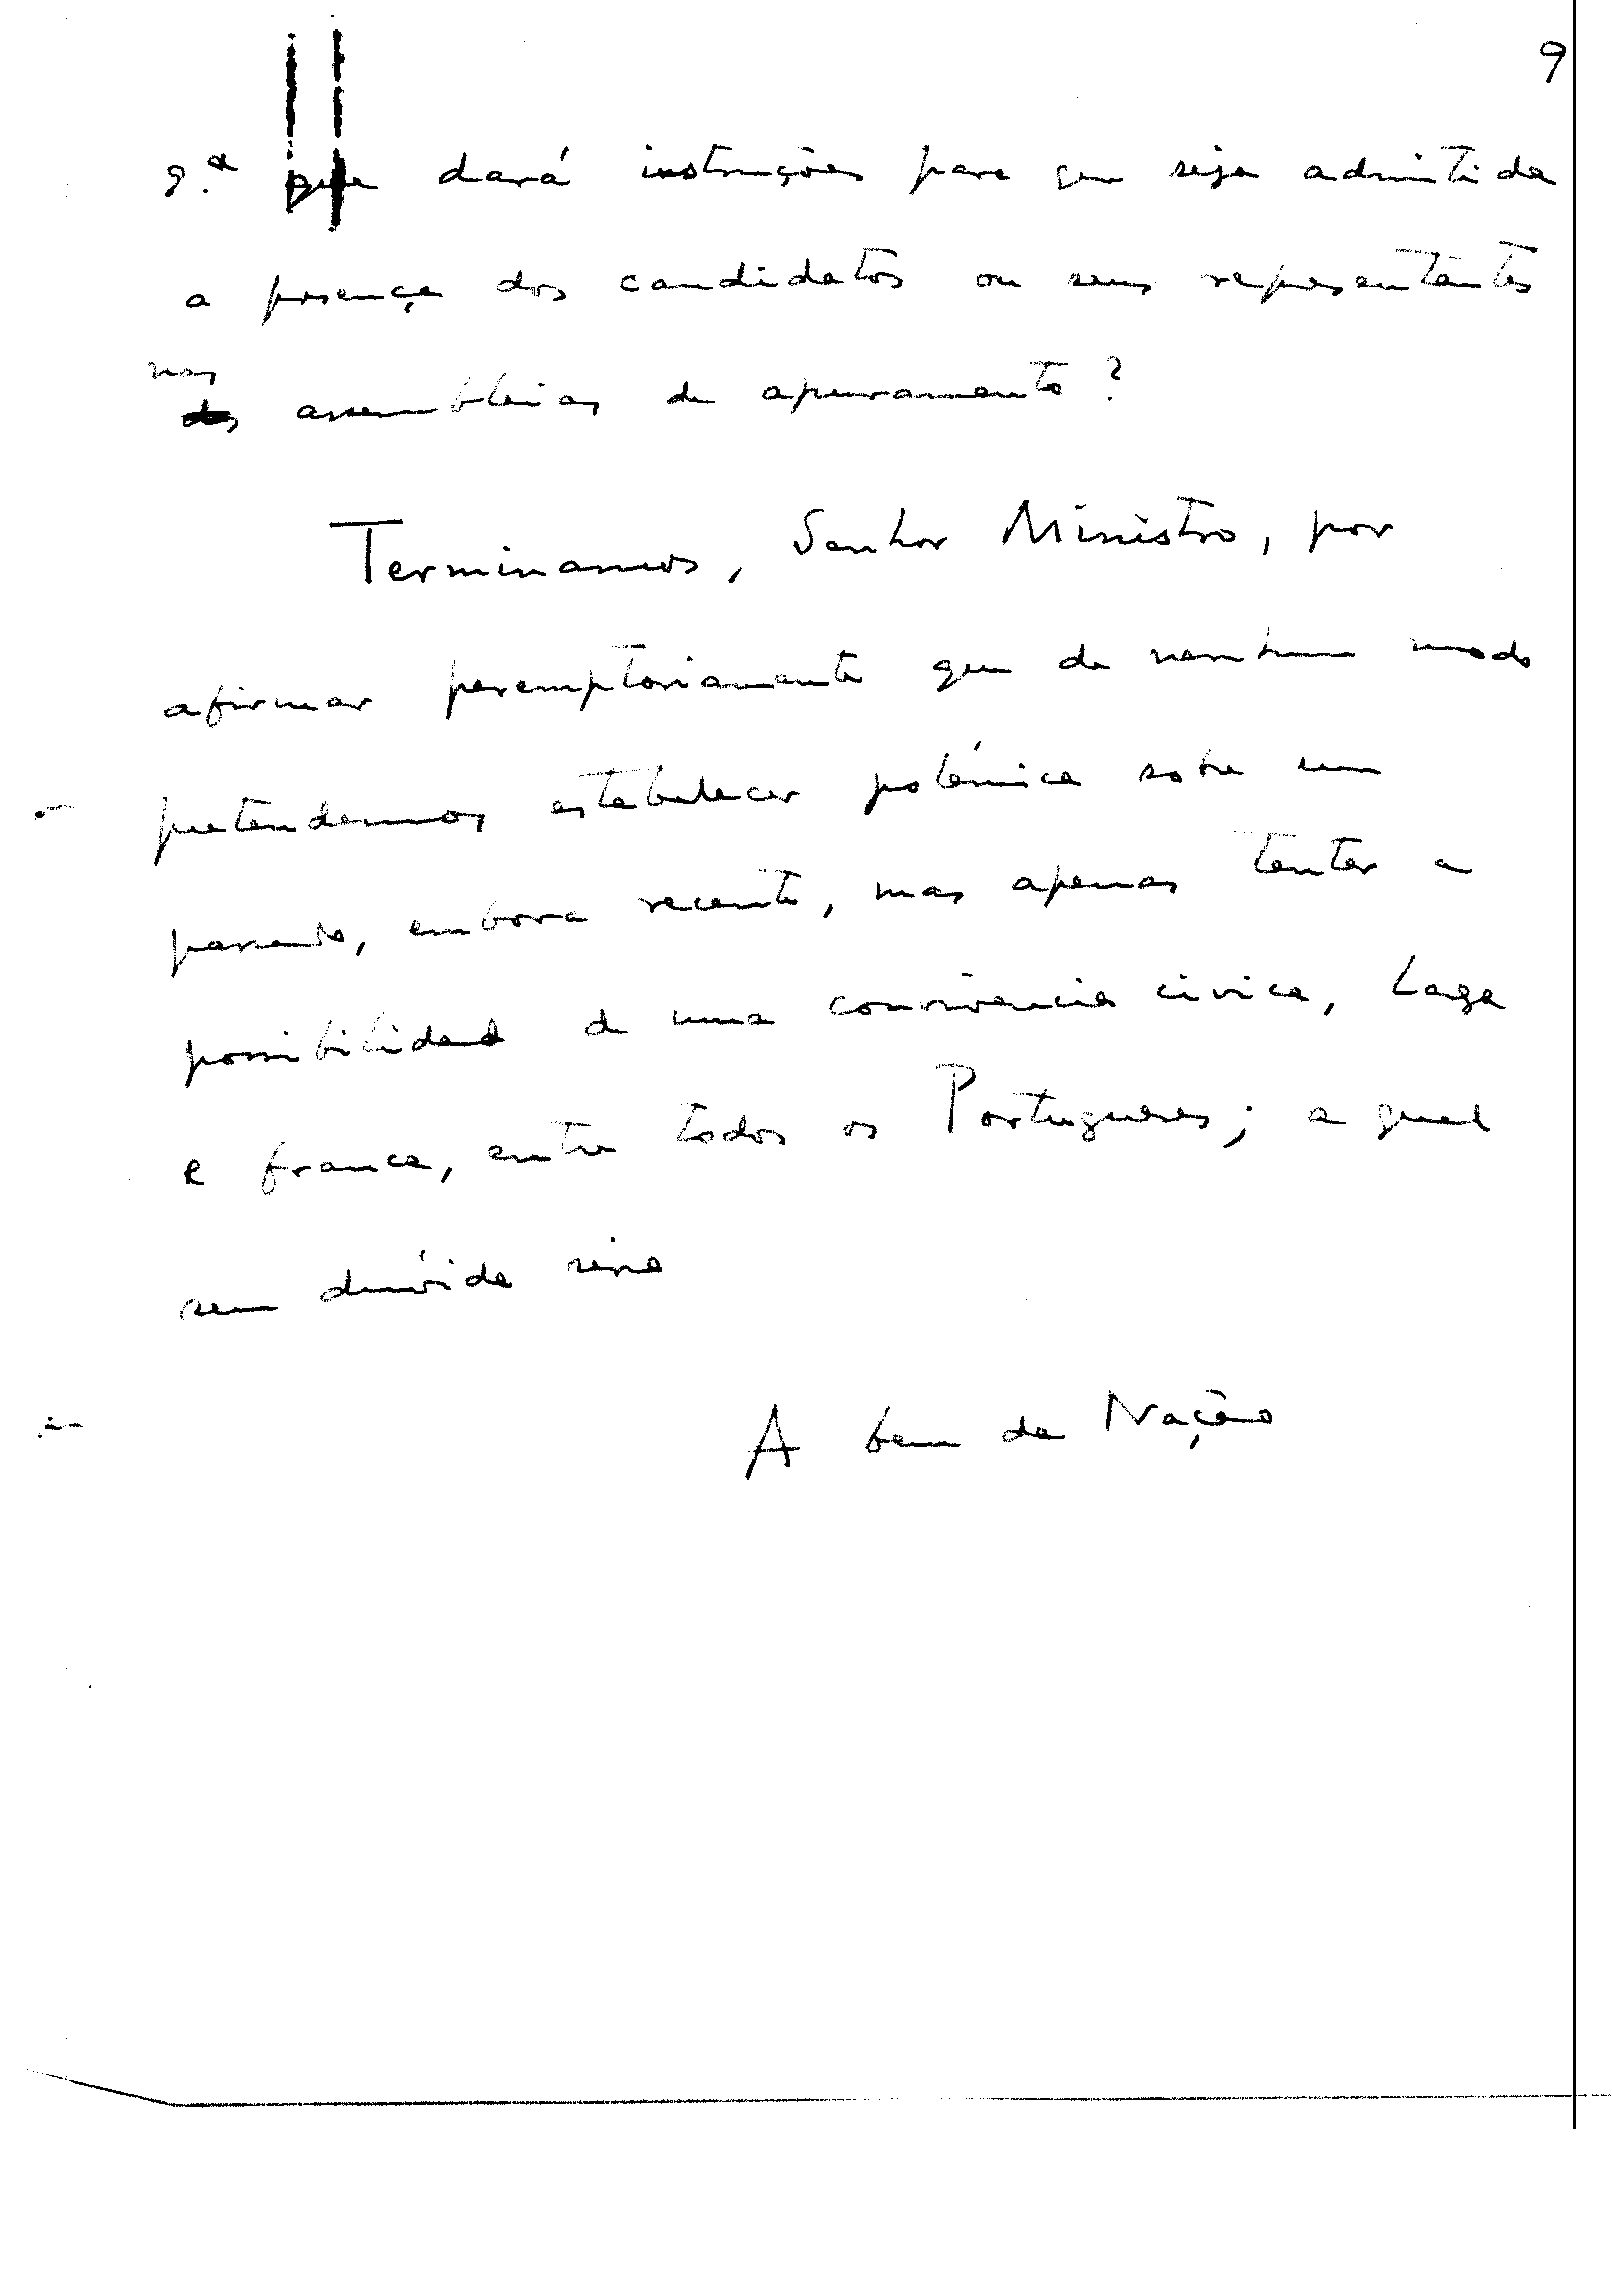 9
9.ª que dará instruções para que seja admitida
a presença dos candidatos ou seus representantes
nas
assembleias de apuramento?
Terminamos, Senhor Ministro, por
afirmar peremptoriamente que de nenhum modo
pretendemos estabelecer polémica sobre um
passado, embora recente, mas apenas tentar a
possibilidade de uma convivencia civica, larga
e franca, entre todos os Portugueses; a qual
sem dúvida seria
A bem da Nação